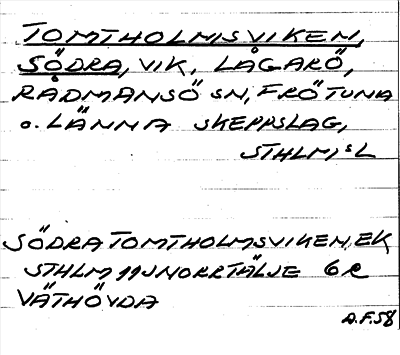 TOMTHOLMSVIKEN,
SÖDRA, VIK, LÅGARÖ,
RÅDMANSÖ SN, FRÖTUNA
o. LÄNNA SKEPPSLAG,
STHLMS L
SÖDRA TOMTHOLMSVIKEN, EK
STHLM 11J NORRTÄLJE 6 e
VÄTHÖVDA
A.F. 58